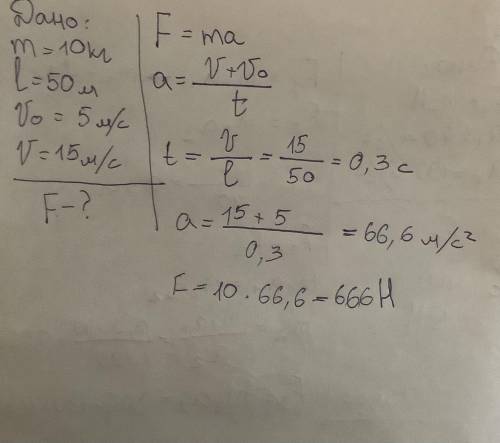 Дано:
m = 10 кг
l = 50 м
V₀ = 5 м/с
V = 15 м/с
F - ?
F = ma
a = (V + V₀) / t
t = V / l = 15 / 50 = 0,3 с
a = (15 + 5) / 0,3 = 66,6 м/с²
F = 10 · 66,6 = 666 Н